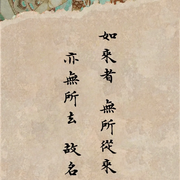 如來者 無所從來
亦無所去 故名